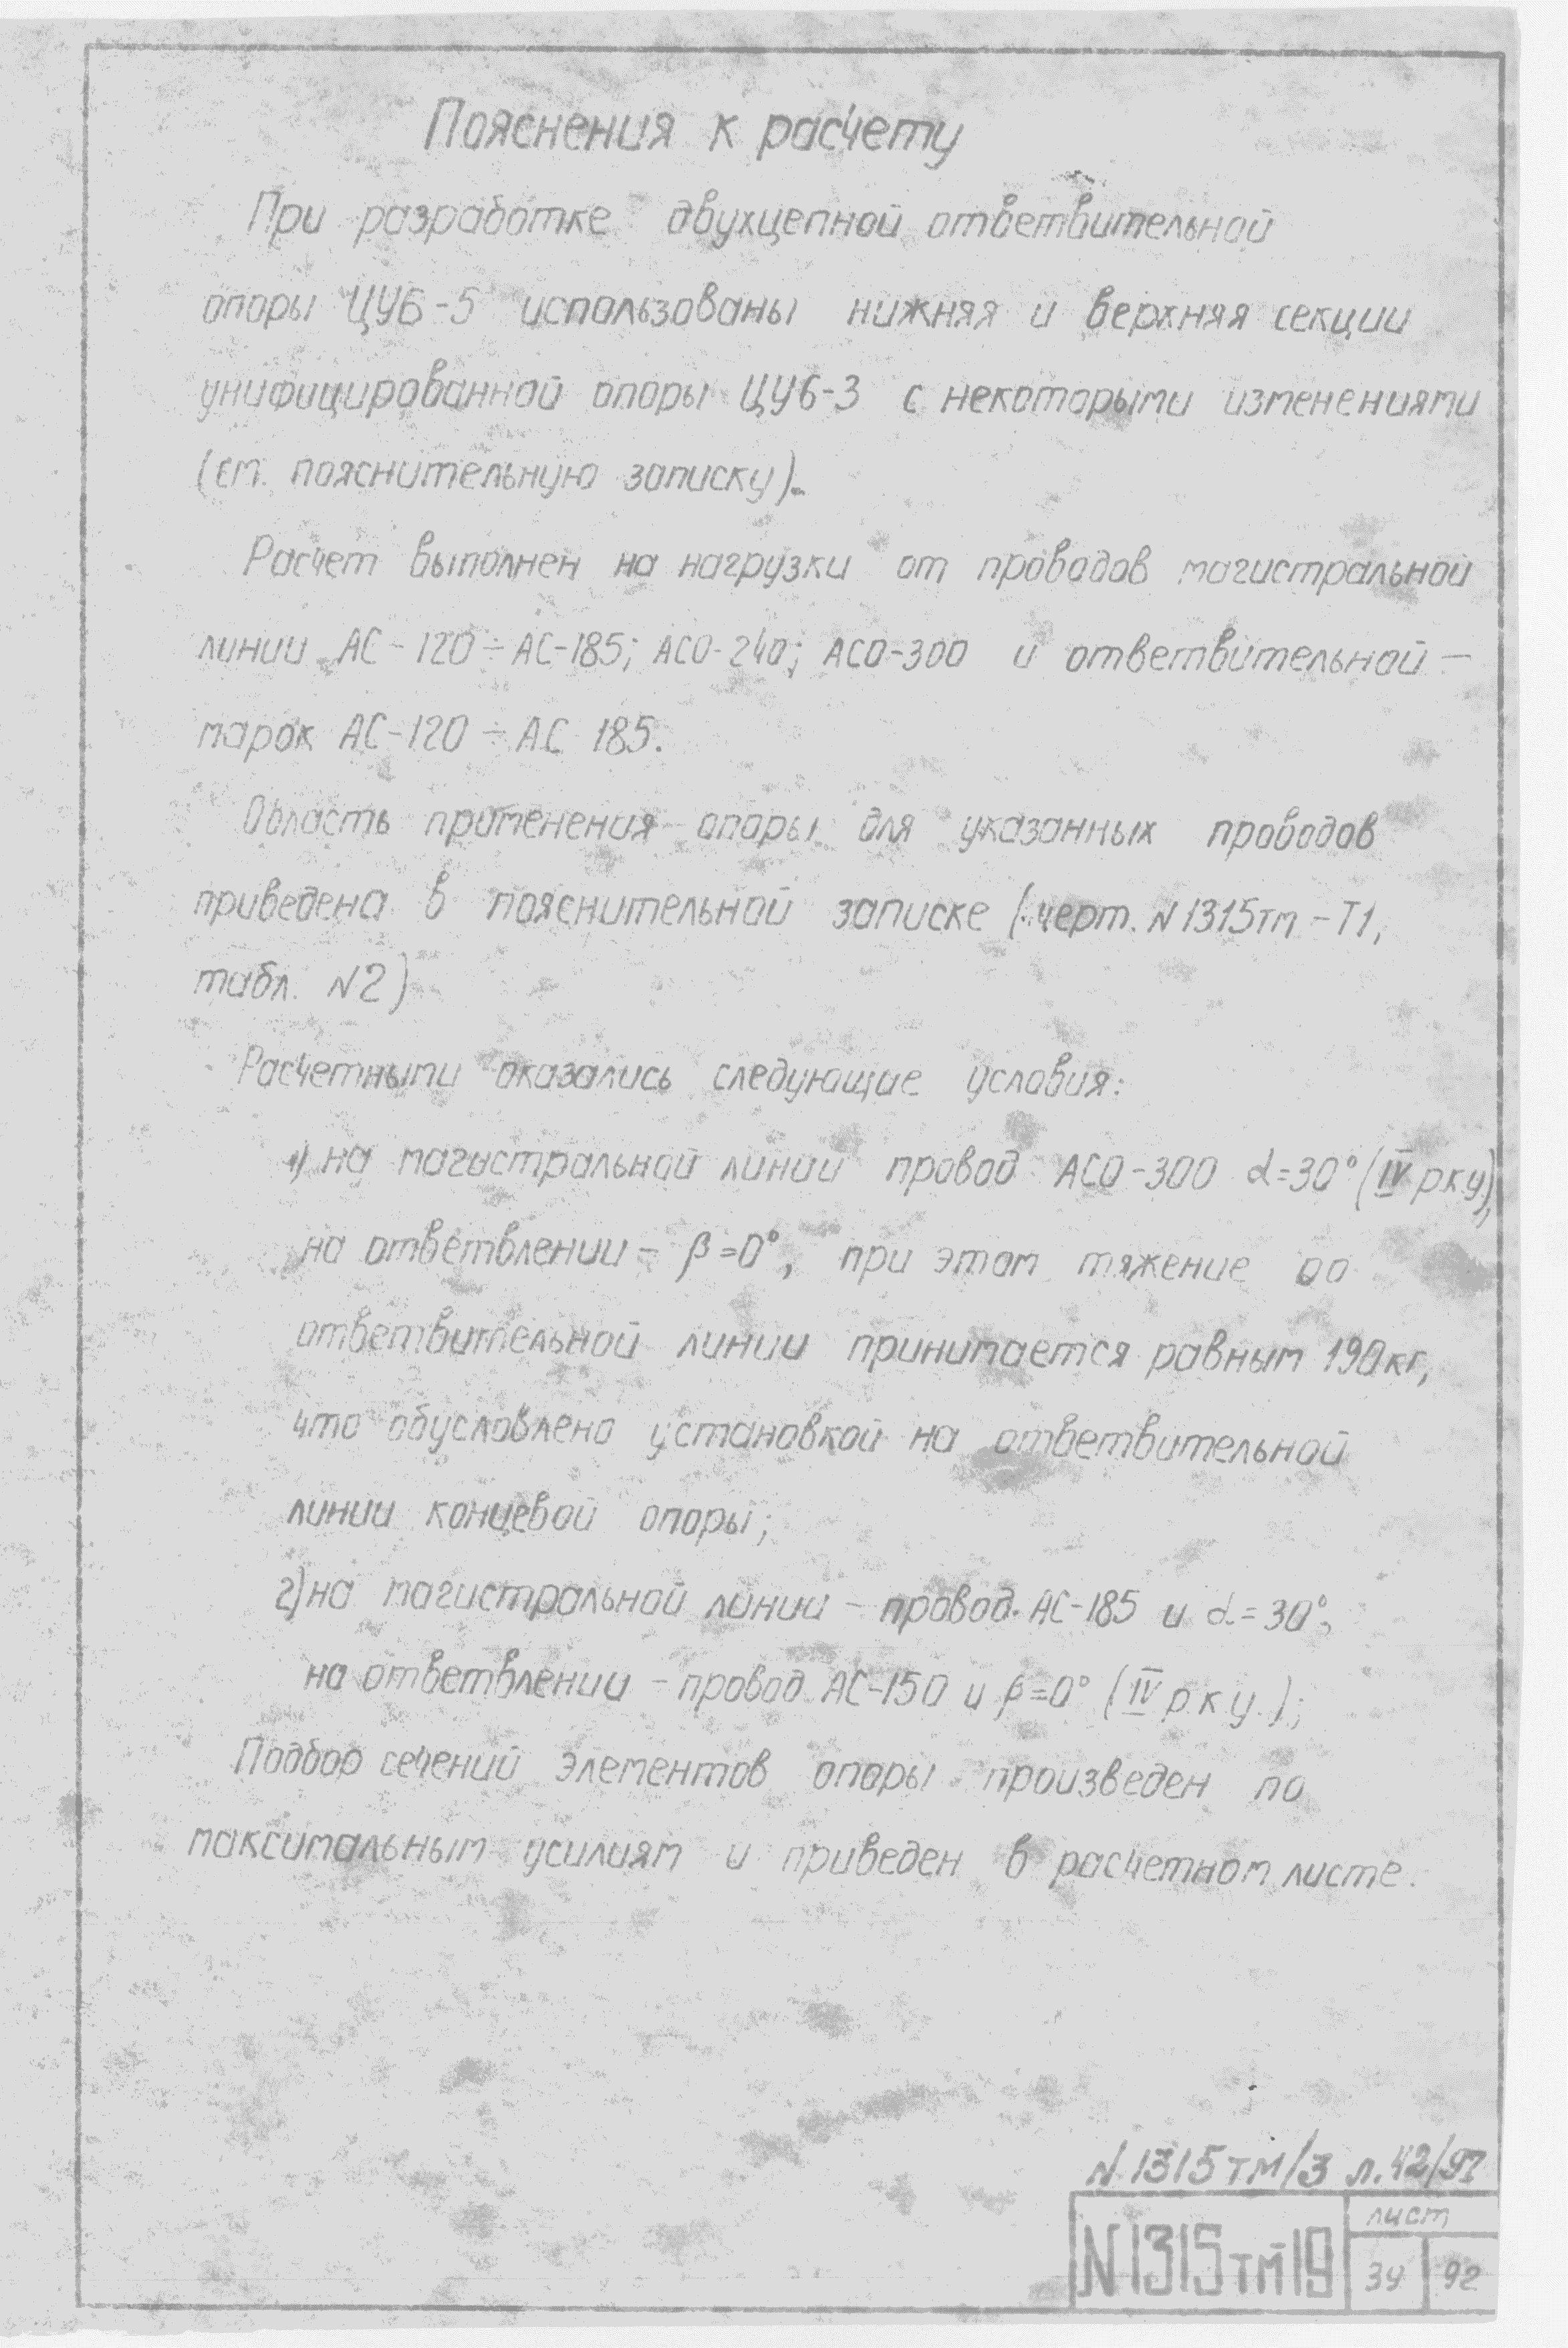 Пояснения к расчету
При разработке двухцепной ответвительной
опоры ЦУБ-5 использованы нижняя и верхняя секции
унифицированной опоры ЦУБ-3 с некоторыми изменениями
(см. пояснительную записку).
Расчет выполнен на нагрузки от проводов магистральной
линии АС-120÷АС-185; АСО-240; АСО-300 и ответвительной –
марок АС-120÷АС 185.
Область применения опоры для указанных проводов
приведена в пояснительной записке (черт. N 1315тм-Т1,
табл. N2)
Расчетными оказались следующие условия:
1) на магистральной линии провод АСО-300 α=30° (IV р.к.у.),
на ответвлении – β=0°, при этом тяжение по
ответвительной линии принимается равным 190кг,
что обусловлено установкой на ответвительной
линии концевой опоры;
2) на магистральной линии – провод АС-185 и α=30°,
на ответвлении – провод АС-150 и β=0° (IV р.к.у.);
Подбор сечений элементов опоры произведен по
максимальным усилиям и приведен в расчетном листе.
N 1315тм/3 л.42/97
лист
N1315тм19
92